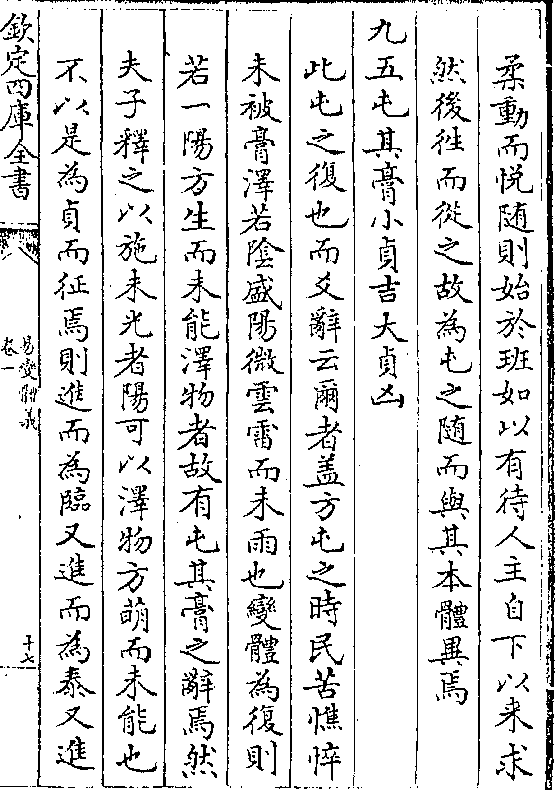 柔動而悦随則始於班如以有待人主自下以来求
然後徃而從之故為屯之随而與其本體異焉
九五屯其膏小貞吉大貞凶
此屯之復也而爻辭云爾者盖方屯之時民苦憔悴
未被膏澤若陰盛陽微雲雷而未雨也變體為復則
若一陽方生而未能澤物者故有屯其膏之辭焉然
夫子釋之以施未光者陽可以澤物方萌而未能也
不以是為貞而征焉則進而為臨又進而為泰又進
欽定四庫全書
易變體義
卷一
十七